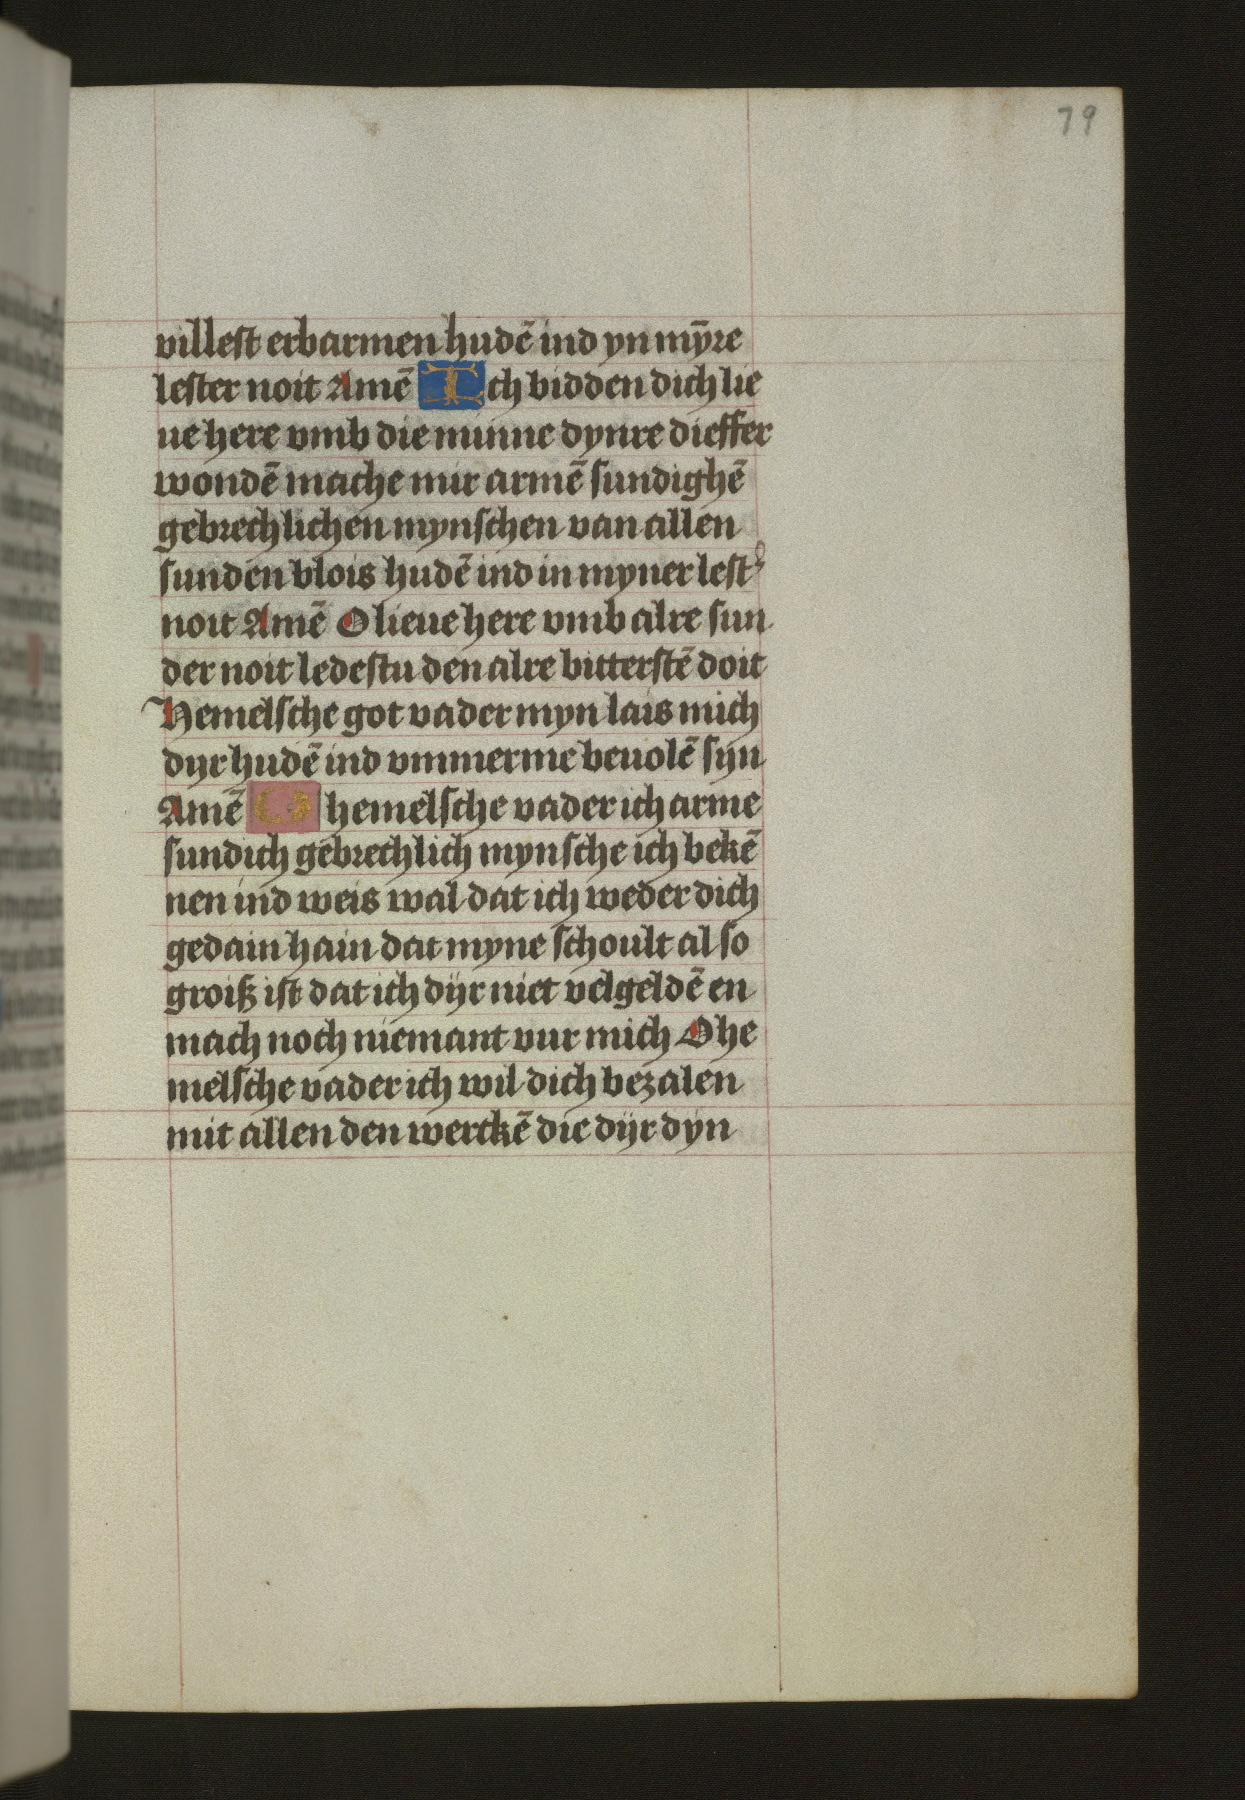 79
villest erbarmen hudē ind yn mȳre
lester noit Amē Ich bidden dich lie
ue here vmb die minne dynre dieffer
wondē mache mir armē sundighē
gebrechlichen mynschen van allen
sunden blois hudē ind in myner lest'
noit Amē O lieue here vmb alre sun
der noit ledestu den alre bitterstē doit
Hemelsche got vader myn lais mich
dyr hudē ind vmmerme beuolē syn
Amē O hemelsche vader ich arme
sundich gebrechlich mynsche ich bekē
nen ind weis wal dat ich weder dich
gedain hain dat myne schoult al so
groiß ist dat ich dyr niet velgeldē en
mach noch niemant vur mich O he
melsche vader ich wil dich bezalen
mit allen den werckē die dyr dyn